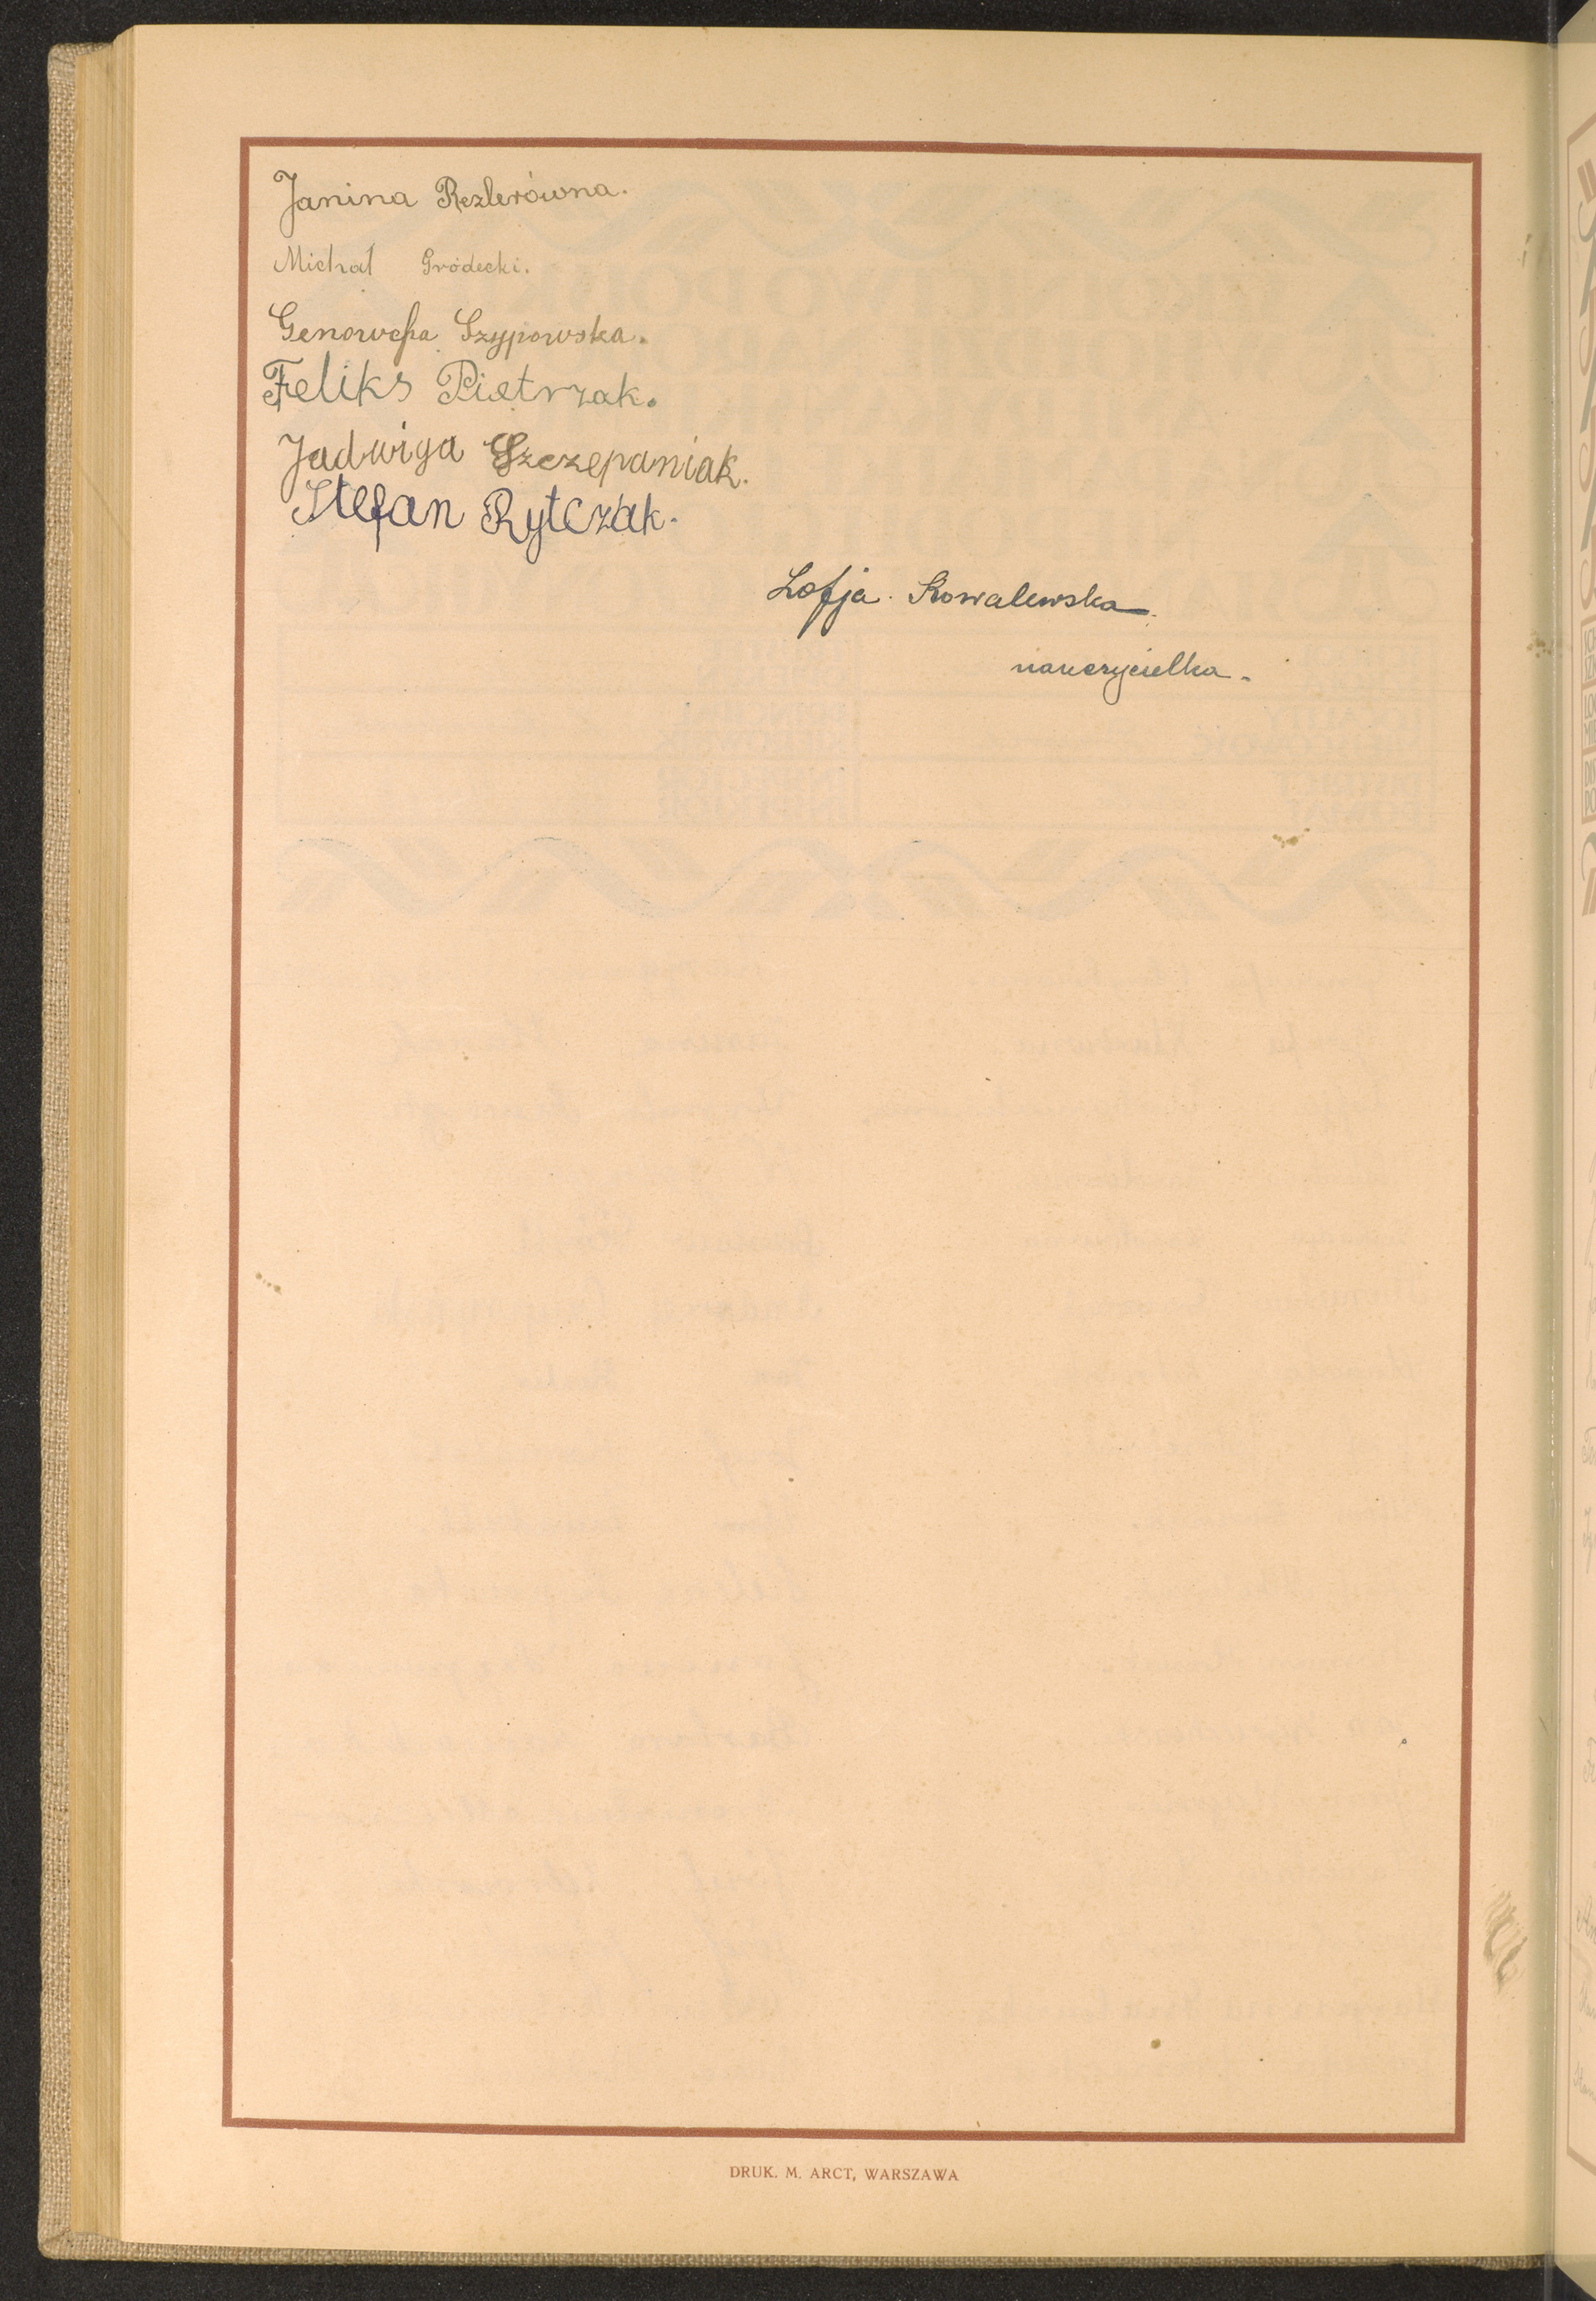 Janina Rezlerówna.
Michał Gródecki.
Genowefa Szyporwska.
Feliks Pietrzak.
Jadwiga Szczepaniak.
Stefan Rytczak.
Zofja Kowalewska
nauczycielka.
DRUK. M. ARCT, WARSZAWA